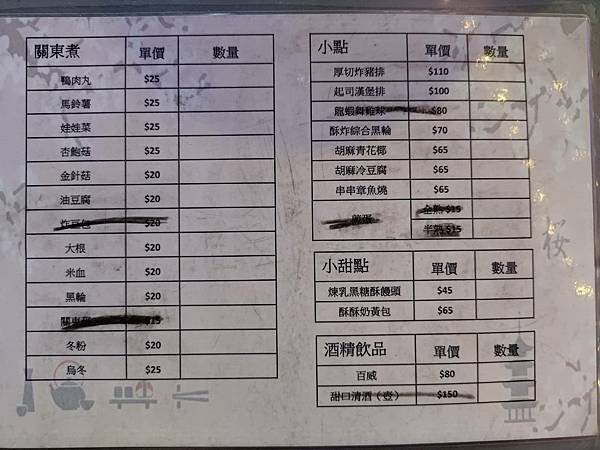 關東煮 單價 數量
鴨肉丸 $25
馬鈴薯 $25
娃娃菜 $25
杏鮑菇 $25
金針菇 $20
油豆腐 $20
炸豆包 $20
大根 $20
米血 $20
黑輪 $20
關東 $15
冬粉 $20
烏冬 $25
小點 單價 數量
厚切炸豬排 $110
起司漢堡排 $100
龍蝦舞雞球 $80
酥炸綜合黑輪 $70
胡麻青花椰 $65
胡麻冷豆腐 $65
串串章魚燒 $65
全熟 $15
半熟 $15
小甜點 單價 數量
煉乳黑糖酥饅頭 $45
酥酥奶黃包 $65
酒精飲品 單價 數量
百威 $80
甜口清酒（壺） $150
桜